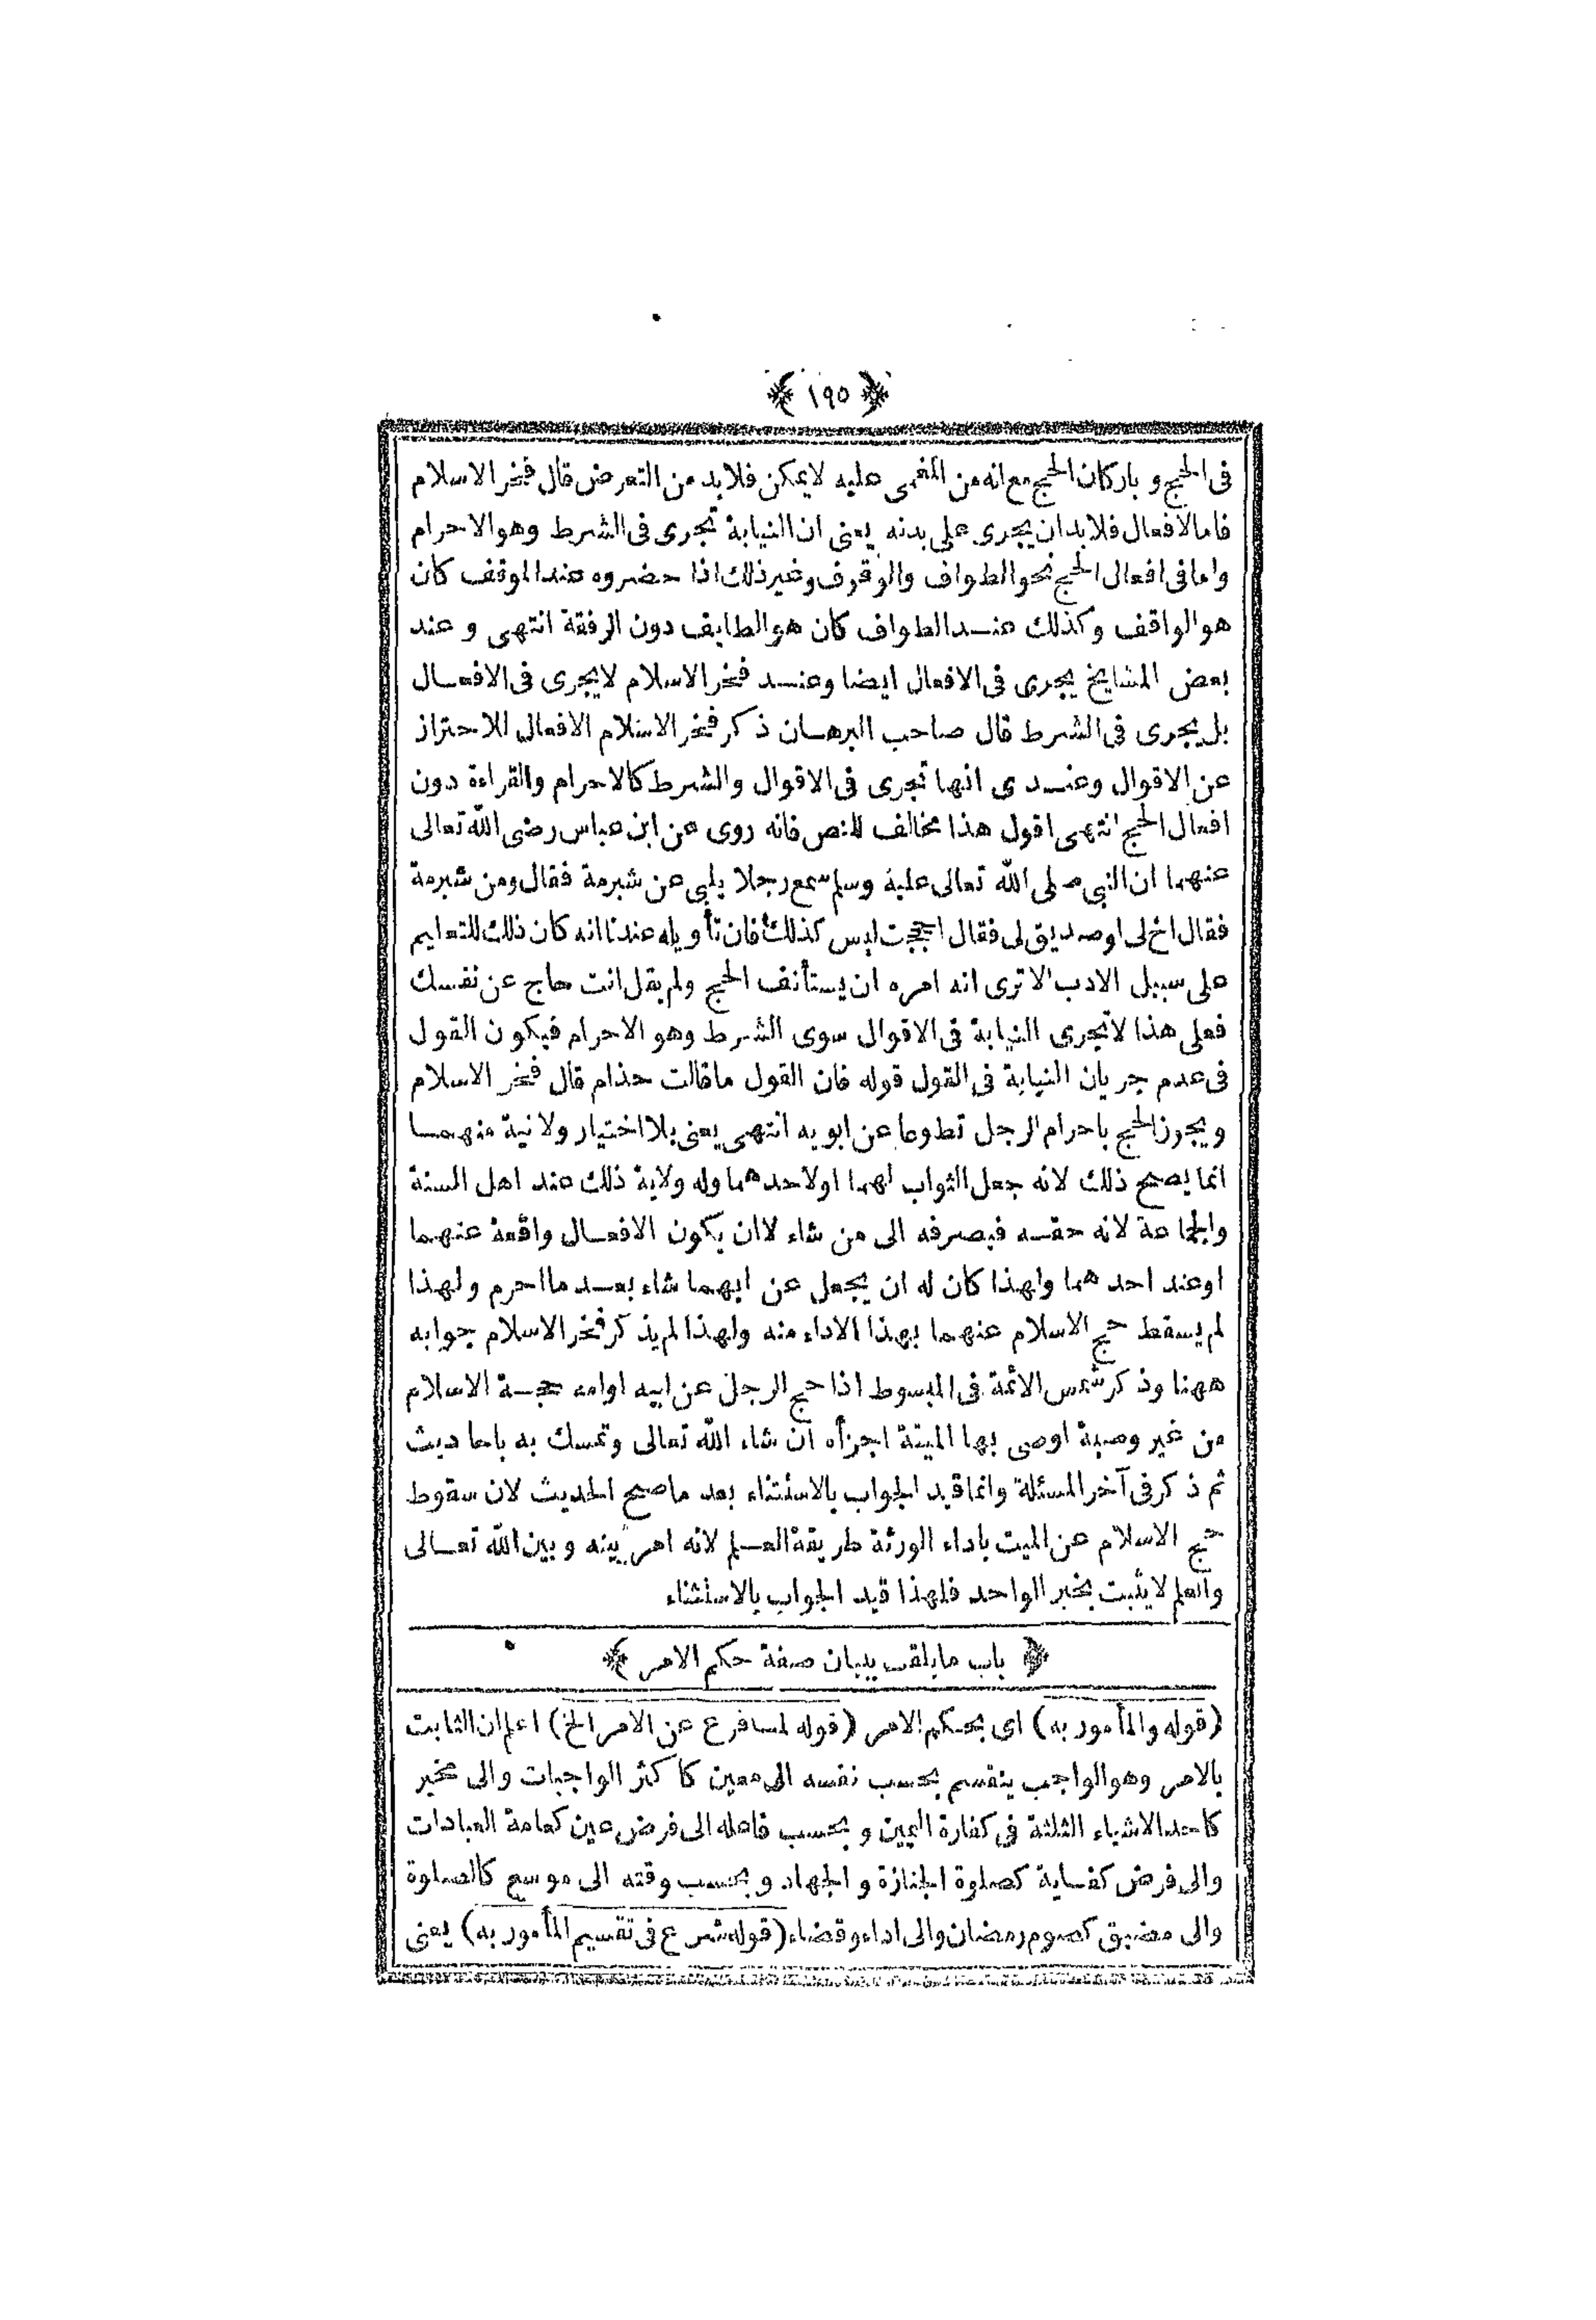 ﴿ ١٩٥ ﴾
فى الحج و باركان الحج مع انه من المغمى عليه لايمكن فلابد من التعرض قال فخر الاسلام
فاما الافعال فلابد ان يجرى على بدنه يعنى ان النيابة تجرى فى الشرط وهو الاحرام
واما فى افعال الحج نحو الطواف والوقوف وغير ذلك اذا حضروه عند الموقف كان
هو الواقف وكذلك عند الطواف كان هو الطايف دون الرفقة انتهى و عند
بعض المشايخ يجرى فى الافعال ايضا وعند فخر الاسلام لايجرى فى الافعال
بل يجرى فى الشرط قال صاحب البرهان ذكر فخر الاسلام الافعال للاحتراز
عن الاقوال وعندى انها تجرى فى الاقوال والشرط كالاحرام والقراءة دون
افعال الحج انتهى اقول هذا مخالف للنص فانه روى عن ابن عباس رضى الله تعالى
عنهما ان النبى صلى الله تعالى عليه وسلم سمع رجلا يلبى عن شبرمة فقال ومن شبرمة
فقال اخ لى او صديق لى فقال احججت ليس كذلك فان تأويله عندنا انه كان ذلك للتعليم
على سبيل الادب الا ترى انه امره ان يستأنف الحج ولم يقل انت حاج عن نفسك
فعلى هذا لاتجرى النيابة فى الاقوال سوى الشرط وهو الاحرام فيكون القول
فى عدم جريان النيابة فى القول قوله فان القول ماقالت حذام قال فخر الاسلام
ويجوز الحج باحرام الرجل تطوعا عن ابويه انتهى يعنى بلا اختيار ولا نية منهما
انما يصح ذلك لانه جعل الثواب لهما او لاحدهما وله ولاية ذلك عند اهل السنة
والجماعة لانه حقه فيصرفه الى من شاء لا ان يكون الافعال واقعة عنهما
او عند احدهما ولهذا كان له ان يجعل عن ايهما شاء بعد ما احرم ولهذا
لم يسقط حج الاسلام عنهما بهذا الاداء منه ولهذا لم يذكر فخر الاسلام جوابه
ههنا وذكر شمس الائمة فى المبسوط اذا حج الرجل عن ابيه او امه حجة الاسلام
من غير وصية اوصى بها الميتة اجزأه ان شاء الله تعالى وتمسك به باحاديث
ثم ذكر فى آخر المسئلة وانما قيد الجواب بالاستثناء بعد ماصح الحديث لان سقوط
حج الاسلام عن الميت باداء الورثة طريقة العلم لانه امر بينه و بين الله تعالى
والعلم لايثبت بخبر الواحد فلهذا قيد الجواب بالاستثناء
﴿ باب مايلقب ببيان صفة حكم الامر ﴾
(قوله والمأمور به) اى بحكم الامر (قوله لما فرع عن الامر الخ) اعلم ان الثابت
بالامر وهو الواجب ينقسم بحسب نفسه الى معين كاكثر الواجبات والى مخير
كاحد الاشياء الثلثة فى كفارة اليمين و بحسب فاعله الى فرض عين كعامة العبادات
والى فرض كفاية كصلوة الجنازة و الجهاد و بحسب وقته الى موسع كالصلوة
والى مضيق كصوم رمضان والى اداء وقضاء (قوله شرع فى تقسيم المأمور به) يعنى